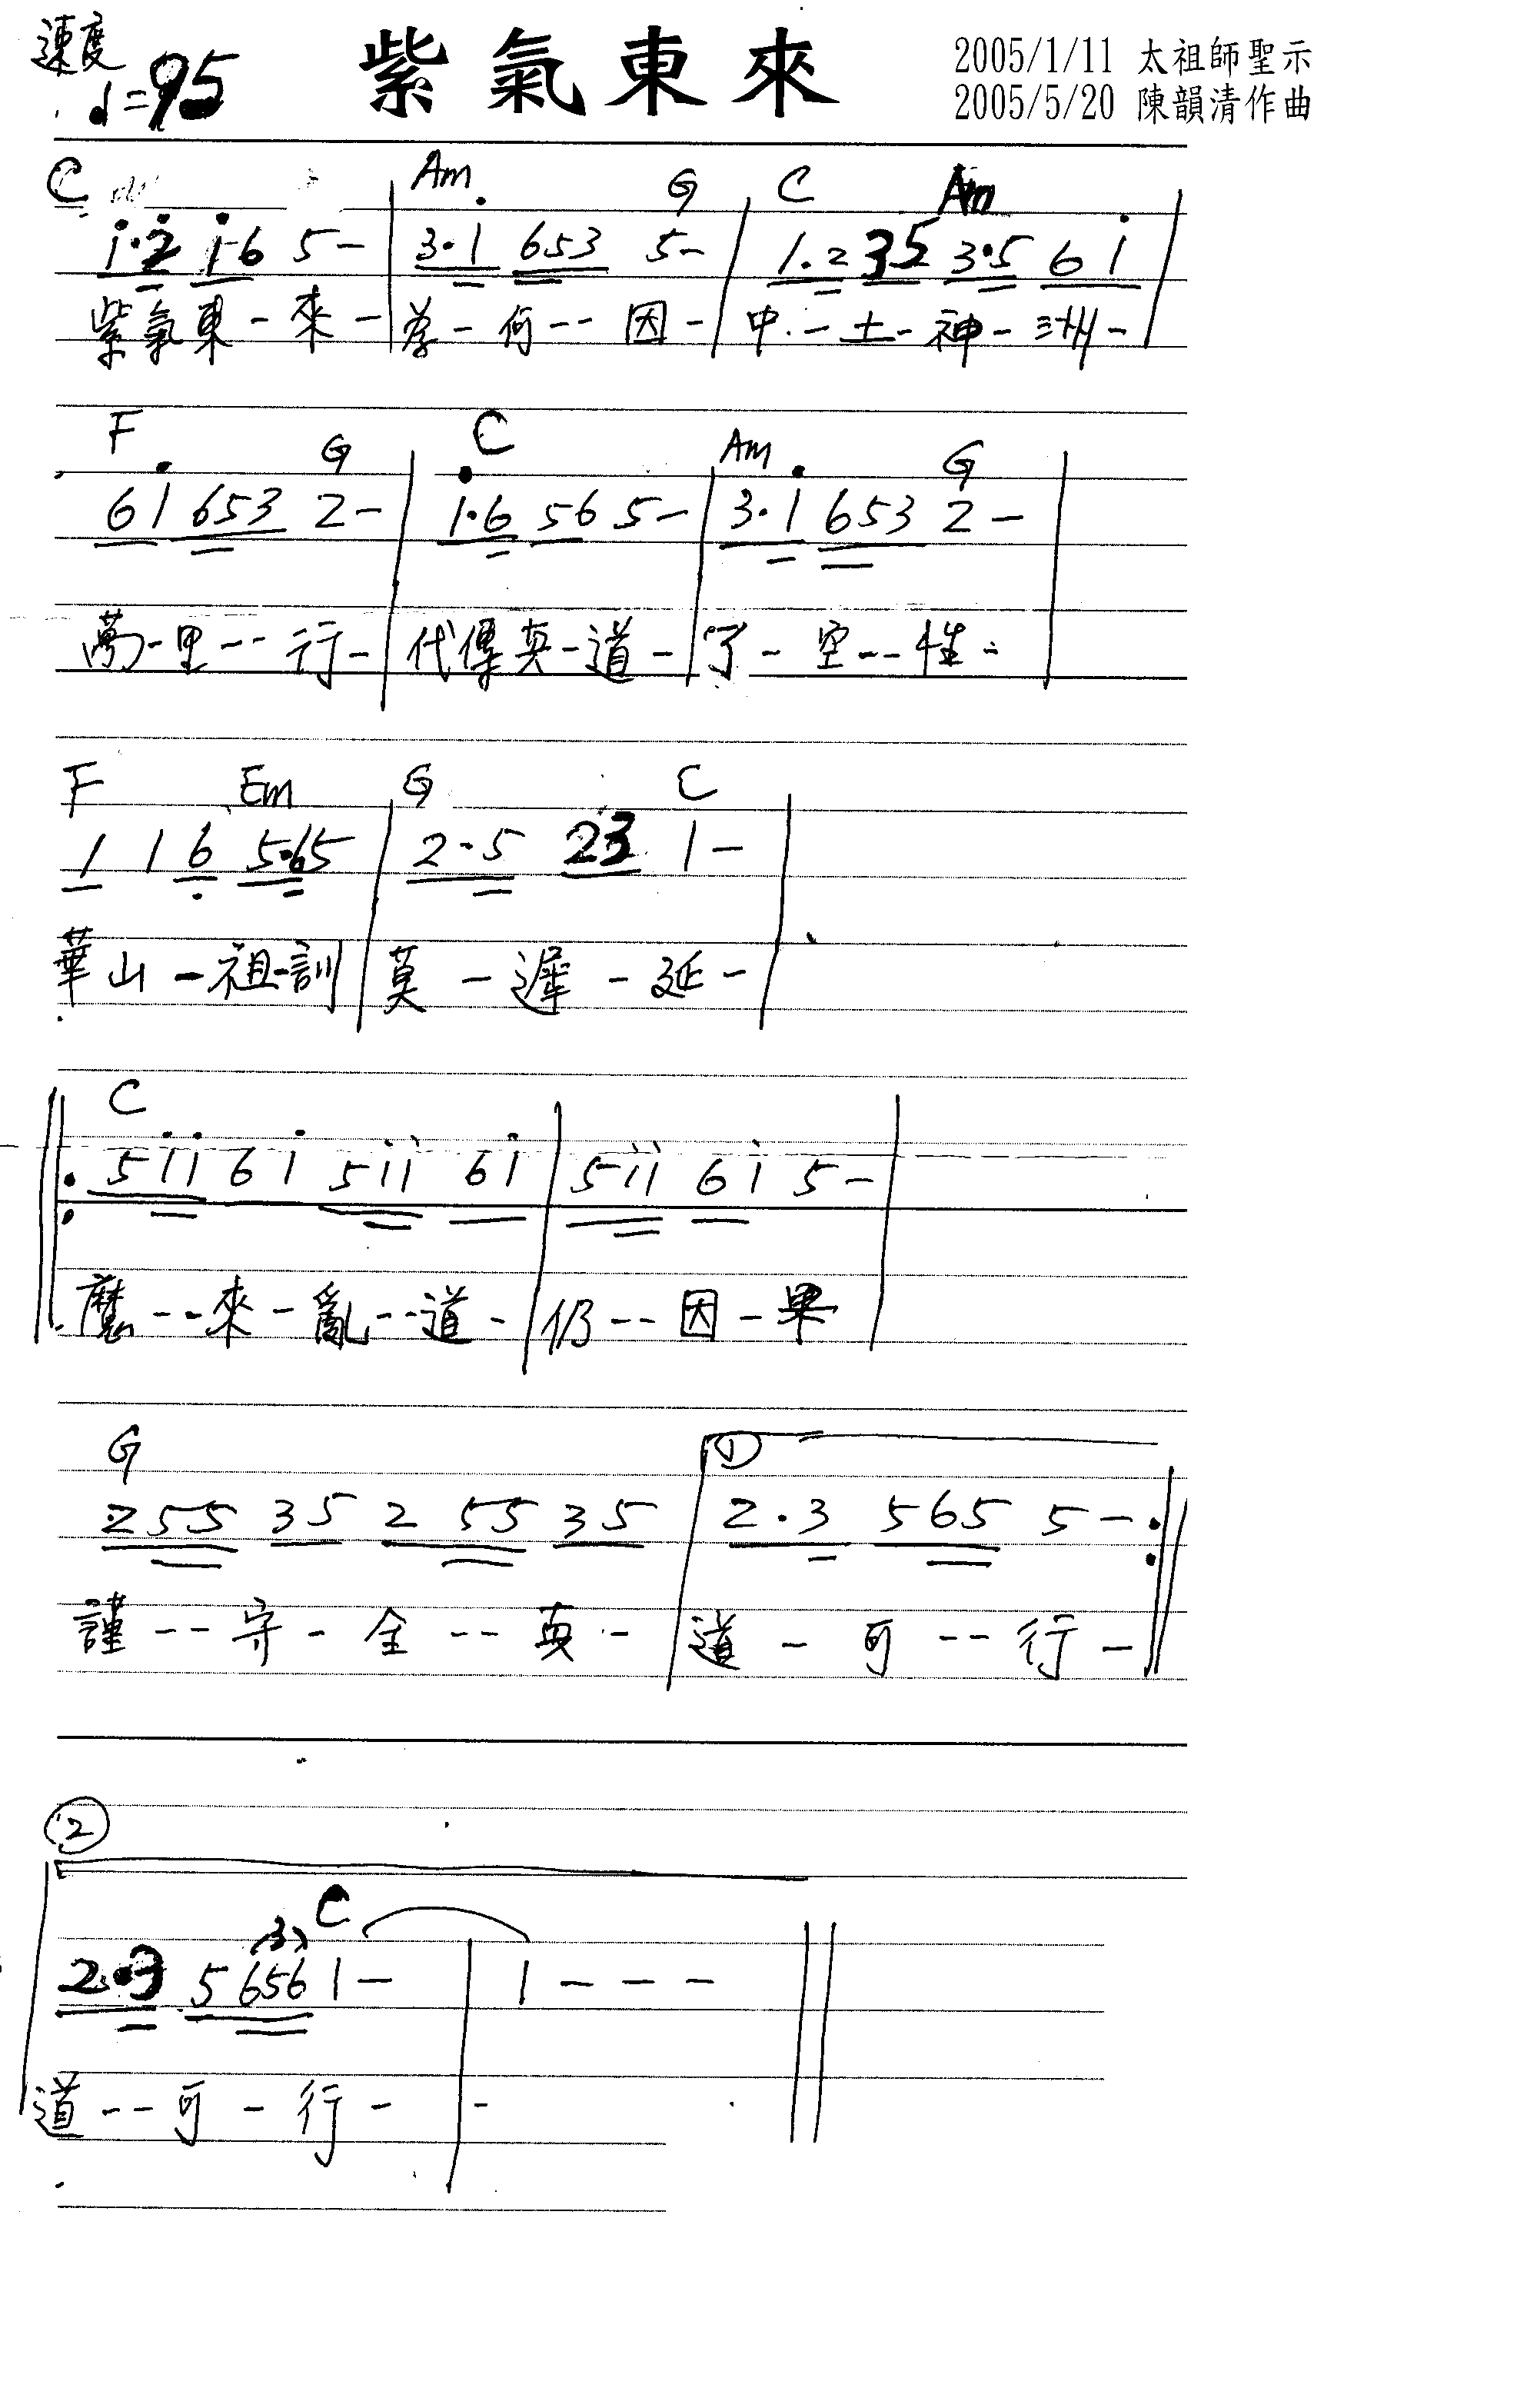 速度 ♩=95 紫氣東來 2005/1/11 太祖師聖示
2005/5/20 陳韻清作曲
C Am G C Am
i·2̇ i·6 5- | 3·i 653 5- | 1·2 35 3·5 6 i |
紫氣東-來-|為-何--因-|中--土-神-洲-|
F G C Am G
6i 653 2- | i·6 56 5- | 3·i 653 2- |
萬-里--行-|代傳真-道-|了-空--性-
F Em G C
1 1 6̣ 5·65 | 2·5 23 1- |
華山-祖-訓|莫-遲-延-|
C
‖: 5ii 6i 5ii 6i | 5ii 6i 5- |
魔--來-亂--道-|仍--因-果|
G ①
255 35 2 55 35 | 2·3 565 5- :‖
謹--守-全--真--|道-可--行-
②
C
(3)
2·3 5656 1- | 1--- ‖
道--可-行-|-